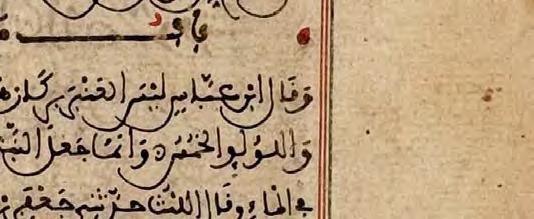 باب
وقال ابن عباس ليس العنبر بركاز
واللولو الخمس وانما جعل النبي
في الماء وقال الليث حدثني جعفر بن